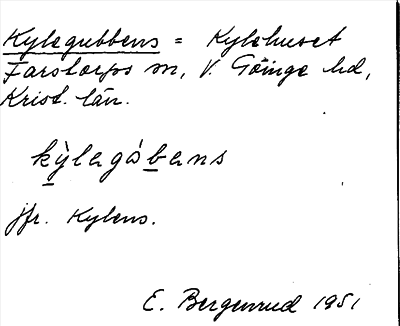 Kylegubbens = Kylehuset
Farstorps sn, V. Göinge hd,
Krist. län.
kỳlagábans
jfr. Kylens.
E. Bergenrud 1951